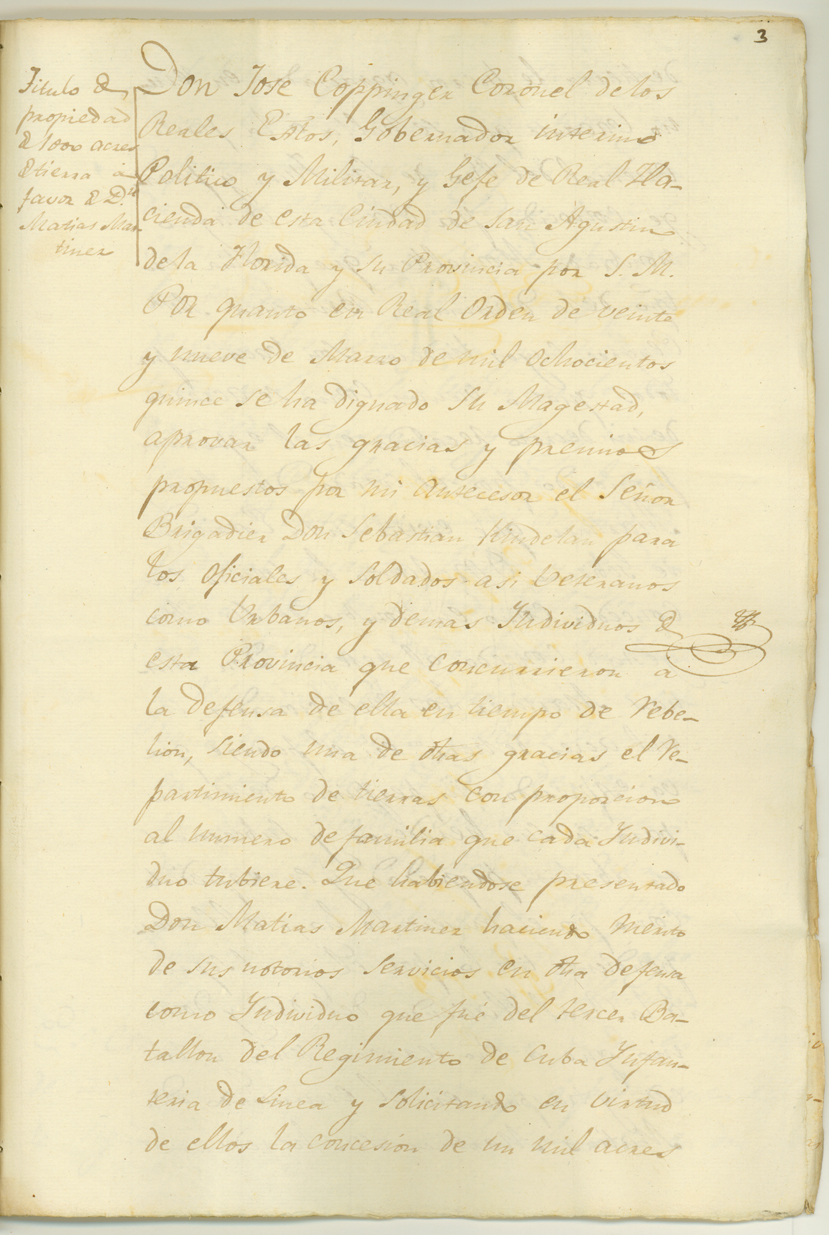 3
Titulo de
propiedad
de 1000 acres
de tierra á
favor de Dn.
Matias Mar-
tinez
Don José Coppinger Coronel de los
Reales Extos, Gobernador interino
Politico y Militar, y Gefe de Real Ha-
cienda de esta Ciudad de San Agustin
de la Florida y su Provincia por S. M.
Por quanto en Real Orden de veinte
y nueve de Marzo de mil ochocientos
quince se ha dignado Su Magestad,
aprovar las gracias y premios
propuestos por mi antecesor el Señor
Brigadier Don Sebastian Kindelan para
los Oficiales y Soldados asi Veteranos
como Urbanos, y demas Individuos de
esta Provincia que concurrieron á
la defensa de ella en tiempo de rebe-
lion, siendo una de dhas gracias el re-
partimiento de tierras con proporcion
al numero de familia que cada Indivi-
duo tubiere. Que habiendose presentado
Don Matias Martinez haciendo merito
de sus notorios servicios en dha defensa
como Individuo que fué del tercer Ba-
tallon del Regimiento de Cuba Infan-
teria de Linea y solicitando en virtud
de ellos la concesion de un mil acres